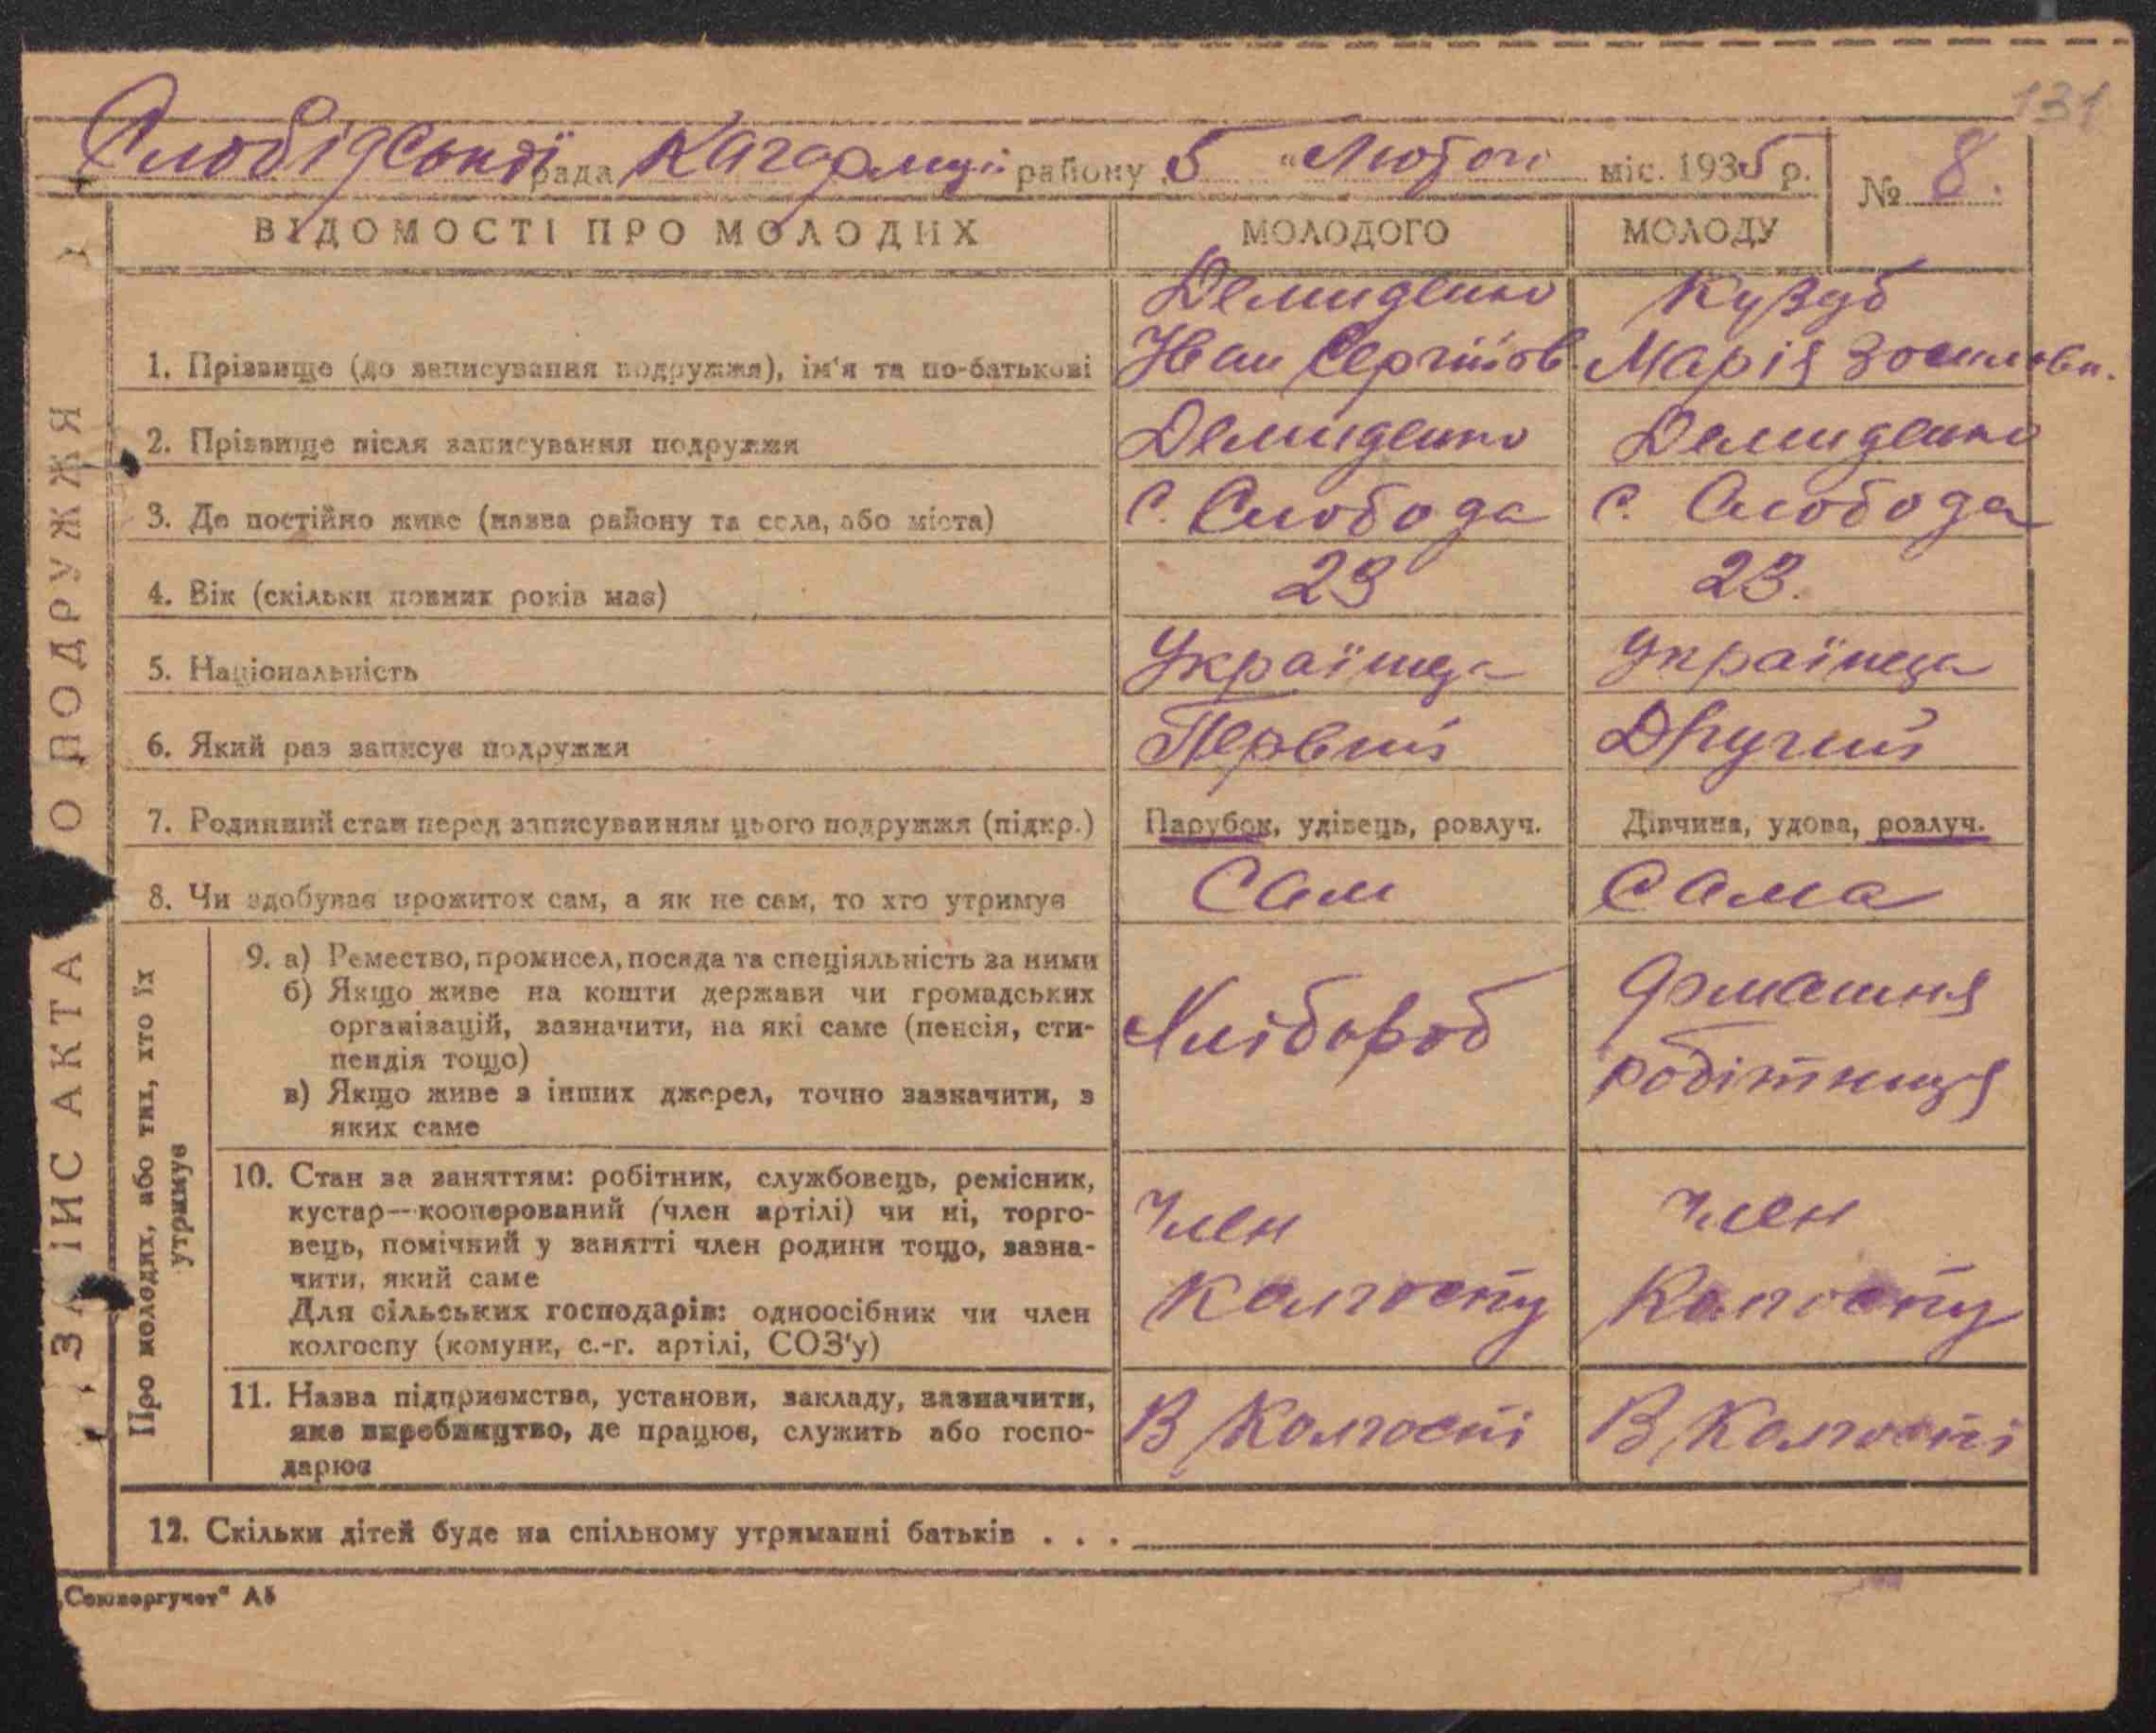 131
Слобідської рада Кагарлиц. району 5 "Лютого міс. 1935 р. № 8.
ВІДОМОСТІ ПРО МОЛОДИХ МОЛОДОГО МОЛОДУ
Демиденко Кузуб
1. Прізвище (до записування подружжя), ім'я та по-батькові Іван Сергійов. Марія Зосимовн.
2. Прізвище після записування подружжя Демиденко Демиденко
3. Де постійно живе (назва району та села, або міста) с. Слобода с. Слобода
4. Вік (скільки повних років має) 23 23.
5. Національність Українец Українец
6. Який раз записує подружжя Первий Другий
7. Родинний стан перед записуванням цього подружжя (підкр.) Парубок, удівець, розлуч. Дівчина, удова, розлуч.
8. Чи здобуває прожиток сам, а як не сам, то хто утримує Сам Сама
ЗАПИС АКТА О ПОДРУЖЖЯ
Про молодих, або тих, хто їх
утримує
9. а) Ремество, промисел, посада та спеціяльність за ними
б) Якщо живе на кошти держави чи громадських
організацій, зазначити, на які саме (пенсія, сти-
пендія тощо)
в) Якщо живе з інших джерел, точно зазначити, з
яких саме
Хлібороб
домашня
робітниця
10. Стан за заняттям: робітник, службовець, ремісник,
кустар—кооперований (член артілі) чи ні, торго-
вець, помічний у занятті член родини тощо, зазна-
чити, який саме
Для сільських господарів: одноосібник чи член
колгоспу (комуни, с.-г. артілі, СОЗ'у)
Член
Колгоспу
Член
Колгоспу
11. Назва підприємства, установи, закладу, зазначити,
яке виробництво, де працює, служить або госпо-
дарює
В Колгоспі В Колгоспі
12. Скільки дітей буде на спільному утриманні батьків . . .
„Союзоргучет" А5